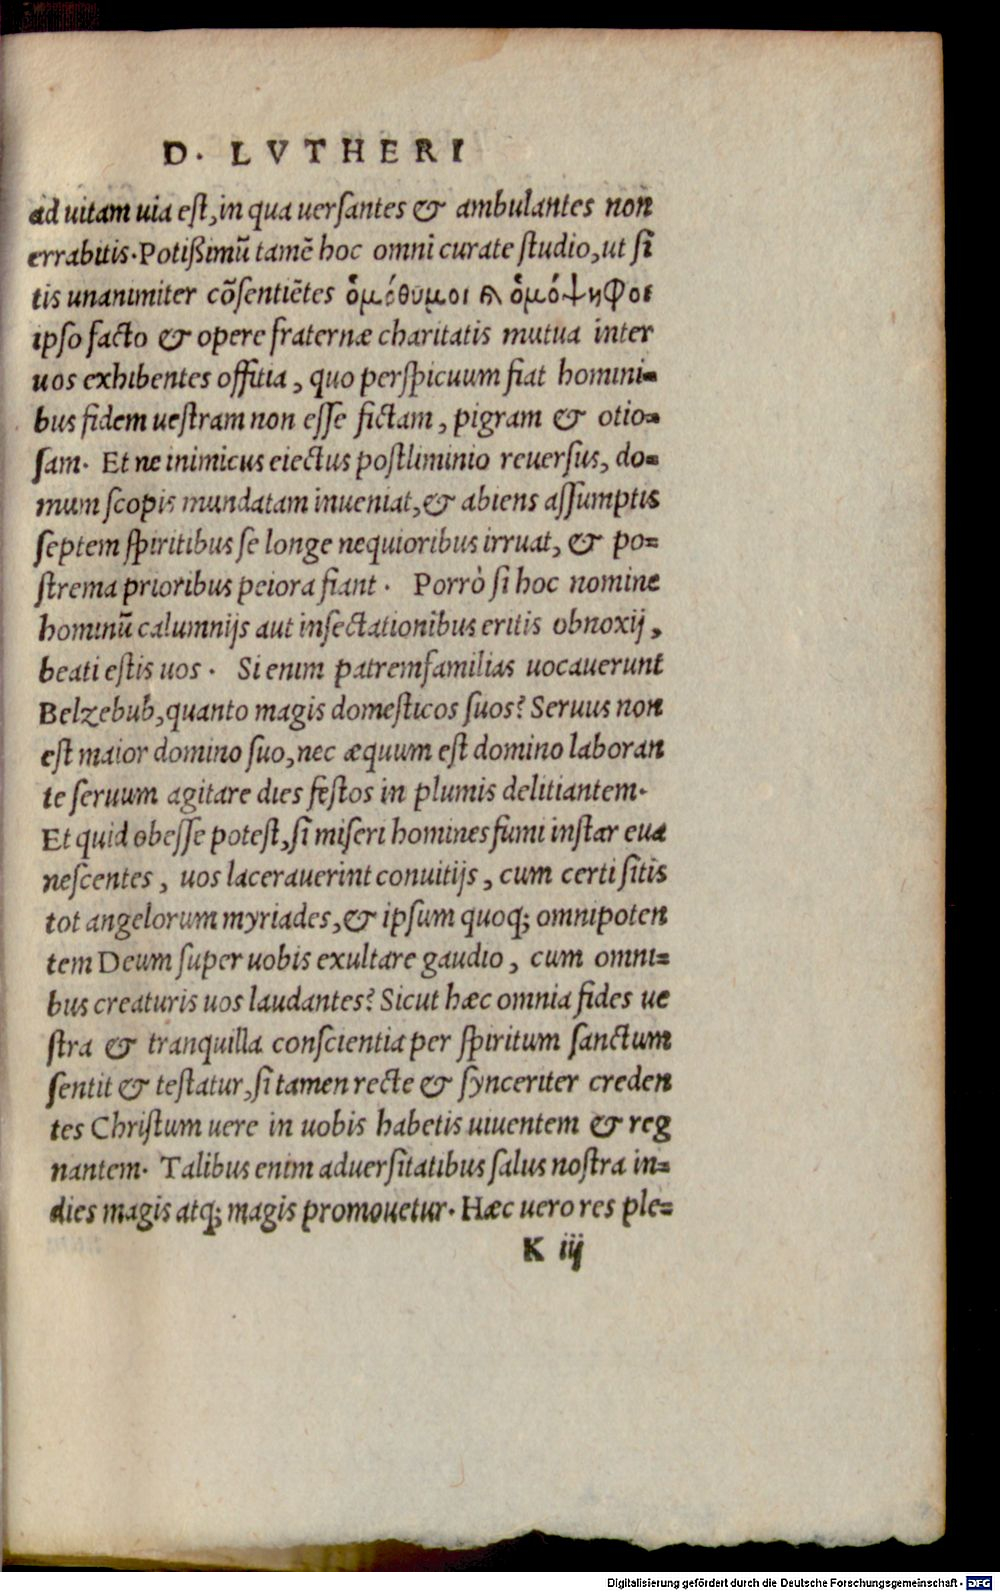 D. LVTHERI
ad uitam uia eſt, in qua uerſantes & ambulantes non
errabitis. Potißimū tamē hoc omni curate ſtudio, ut ſi
tis unanimiter cõſentiētes ὁμόθυμοι ϗ ὁμόψηφοι
ipſo facto & opere fraternæ charitatis mutua inter
uos exhibentes offitia, quo perſpicuum fiat homini-
bus fidem ueſtram non eſſe fictam, pigram & otio-
ſam. Et ne inimicus eiectus poſtliminio reuerſus, do-
mum ſcopis mundatam inueniat, & abiens aſſumptis
ſeptem ſpiritibus ſe longe nequioribus irruat, & po-
ſtrema prioribus peiora fiant. Porrò ſi hoc nomine
hominū calumnijs aut inſectationibus eritis obnoxij,
beati eſtis uos. Si enim patremfamilias uocauerunt
Belzebub, quanto magis domeſticos ſuos? Seruus non
eſt maior domino ſuo, nec æquum eſt domino laboran
te ſeruum agitare dies feſtos in plumis delitiantem.
Et quid obeſſe poteſt, ſi miſeri homines fumi inſtar eua
neſcentes, uos lacerauerint conuitijs, cum certi ſitis
tot angelorum myriades, & ipſum quoq; omnipoten
tem Deum ſuper uobis exultare gaudio, cum omni-
bus creaturis uos laudantes? Sicut hæc omnia fides ue
ſtra & tranquilla conſcientia per ſpiritum ſanctum
ſentit & teſtatur, ſi tamen recte & ſynceriter creden
tes Chriſtum uere in uobis habetis uiuentem & reg
nantem. Talibus enim aduerſitatibus ſalus noſtra in-
dies magis atq; magis promouetur. Hæc uero res ple-
K iij
Digitalisierung gefördert durch die Deutsche Forschungsgemeinschaft - DFG